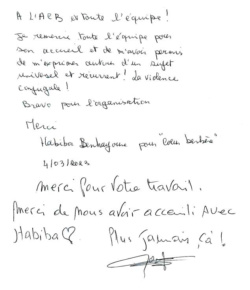 A L'ACB et toute l'équipe !
Je remercie toute l'équipe pour
son accueil et de m'avoir permis
de m'exprimer autour d'un sujet
universel et récurrent ! La violence
conjugale !
Bravo pour l'organisation
Merci
Habiba Benhayoune pour "cœur berbère"
4/03/2023
merci pour votre travail.
Merci de nous avoir accueilli avec
Habiba♡ Plus jamais ça !